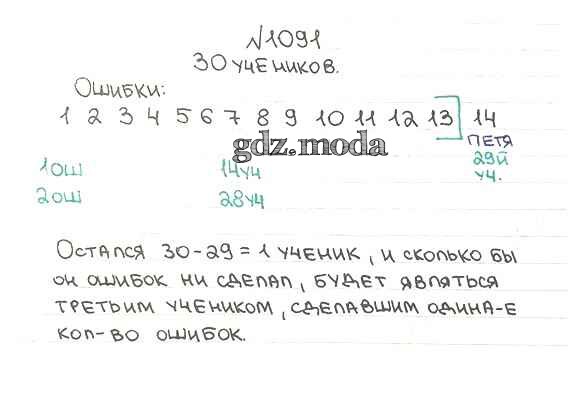 №1091
30 учеников.
Ошибки:
1 2 3 4 5 6 7 8 9 10 11 12 13] 14
gdz.moda
Петя
29й
уч.
1ош 14уч
2ош 28уч
Остался 30-29=1 ученик, и сколько бы
он ошибок ни сделал, будет являться
третьим учеником, сделавшим одина-е
кол-во ошибок.